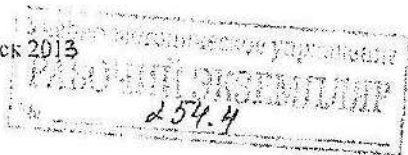 ск 2013
Учебно-методическое управление
РАБОЧИЙ ЭКЗЕМПЛЯР
№ 254.4